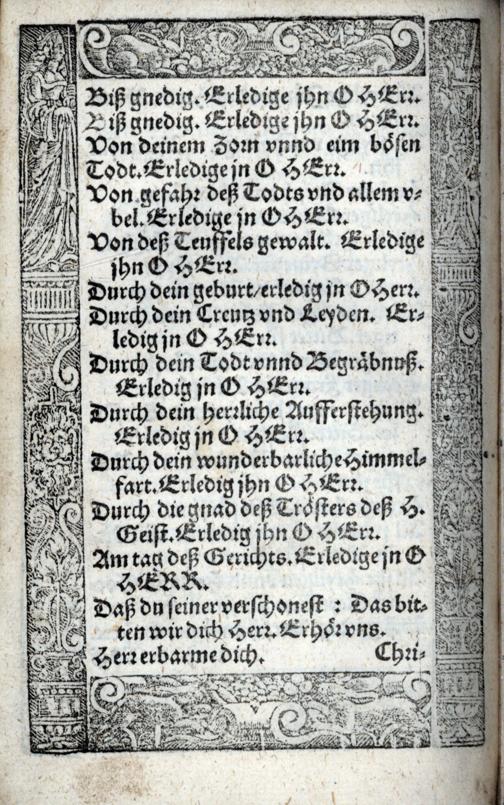 Biß gnedig. Erledige jhn O HErr.
Biß gnedig. Erledige jhn O HErr.
Von deinem Zorn vnnd eim bösen
Todt. Erledige jn O HErr.
Von gefahr deß Todts vnd allem v-
bel. Erledige jn O HErr.
Von deß Teuffels gewalt. Erledige
jhn O HErr.
Durch dein geburt/ erledig jn O Herr.
Durch dein Creutz vnd Leyden. Er-
ledig jn O HErr.
Durch dein Todt vnnd Begräbnuß.
Erledig jn O HErr.
Durch dein herrliche Aufferstehung.
Erledig jn O HErr.
Durch dein wunderbarliche Himmel-
fart. Erledig jhn O HErr.
Durch die gnad deß Trösters deß H.
Geist. Erledig jhn O HErr.
Am tag deß Gerichts. Erledige jn O
HERR.
Daß du seiner verschonest : Das bit-
ten wir dich Herr. Erhör vns.
Herr erbarme dich. Chri-